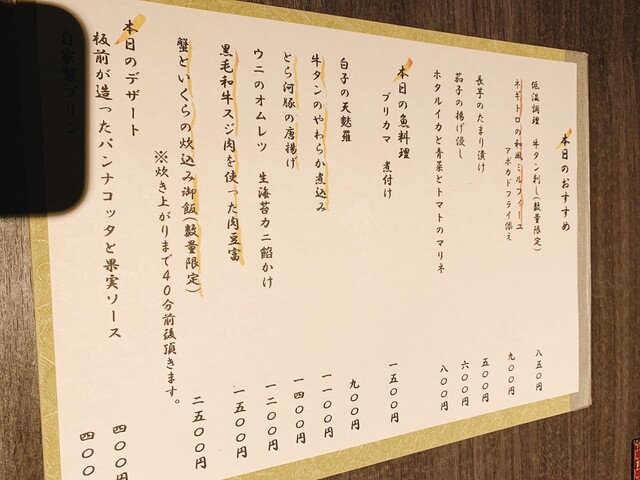 本日のおすすめ
低温調理 牛タン刺し(数量限定) 八五〇円
ネギトロの和風ミルフィーユ
アボカドフライ添え 九〇〇円
長芋のたまり漬け 五〇〇円
茄子の揚げ浸し 六〇〇円
ホタルイカと青菜とトマトのマリネ 八〇〇円
本日の魚料理
ブリカマ 煮付け 一五〇〇円
白子の天麩羅 九〇〇円
牛タンのやわらか煮込み 一一〇〇円
とら河豚の唐揚げ 一四〇〇円
ウニのオムレツ 生海苔カニ餡かけ 一二〇〇円
黒毛和牛スジ肉を使った肉豆富 一五〇〇円
蟹といくらの炊込み御飯(数量限定) 二五〇〇円
※炊き上がりまで40分前後頂きます。
本日のデザート
板前が造ったパンナコッタと果実ソース 四〇〇円
自家製プリン 四〇〇